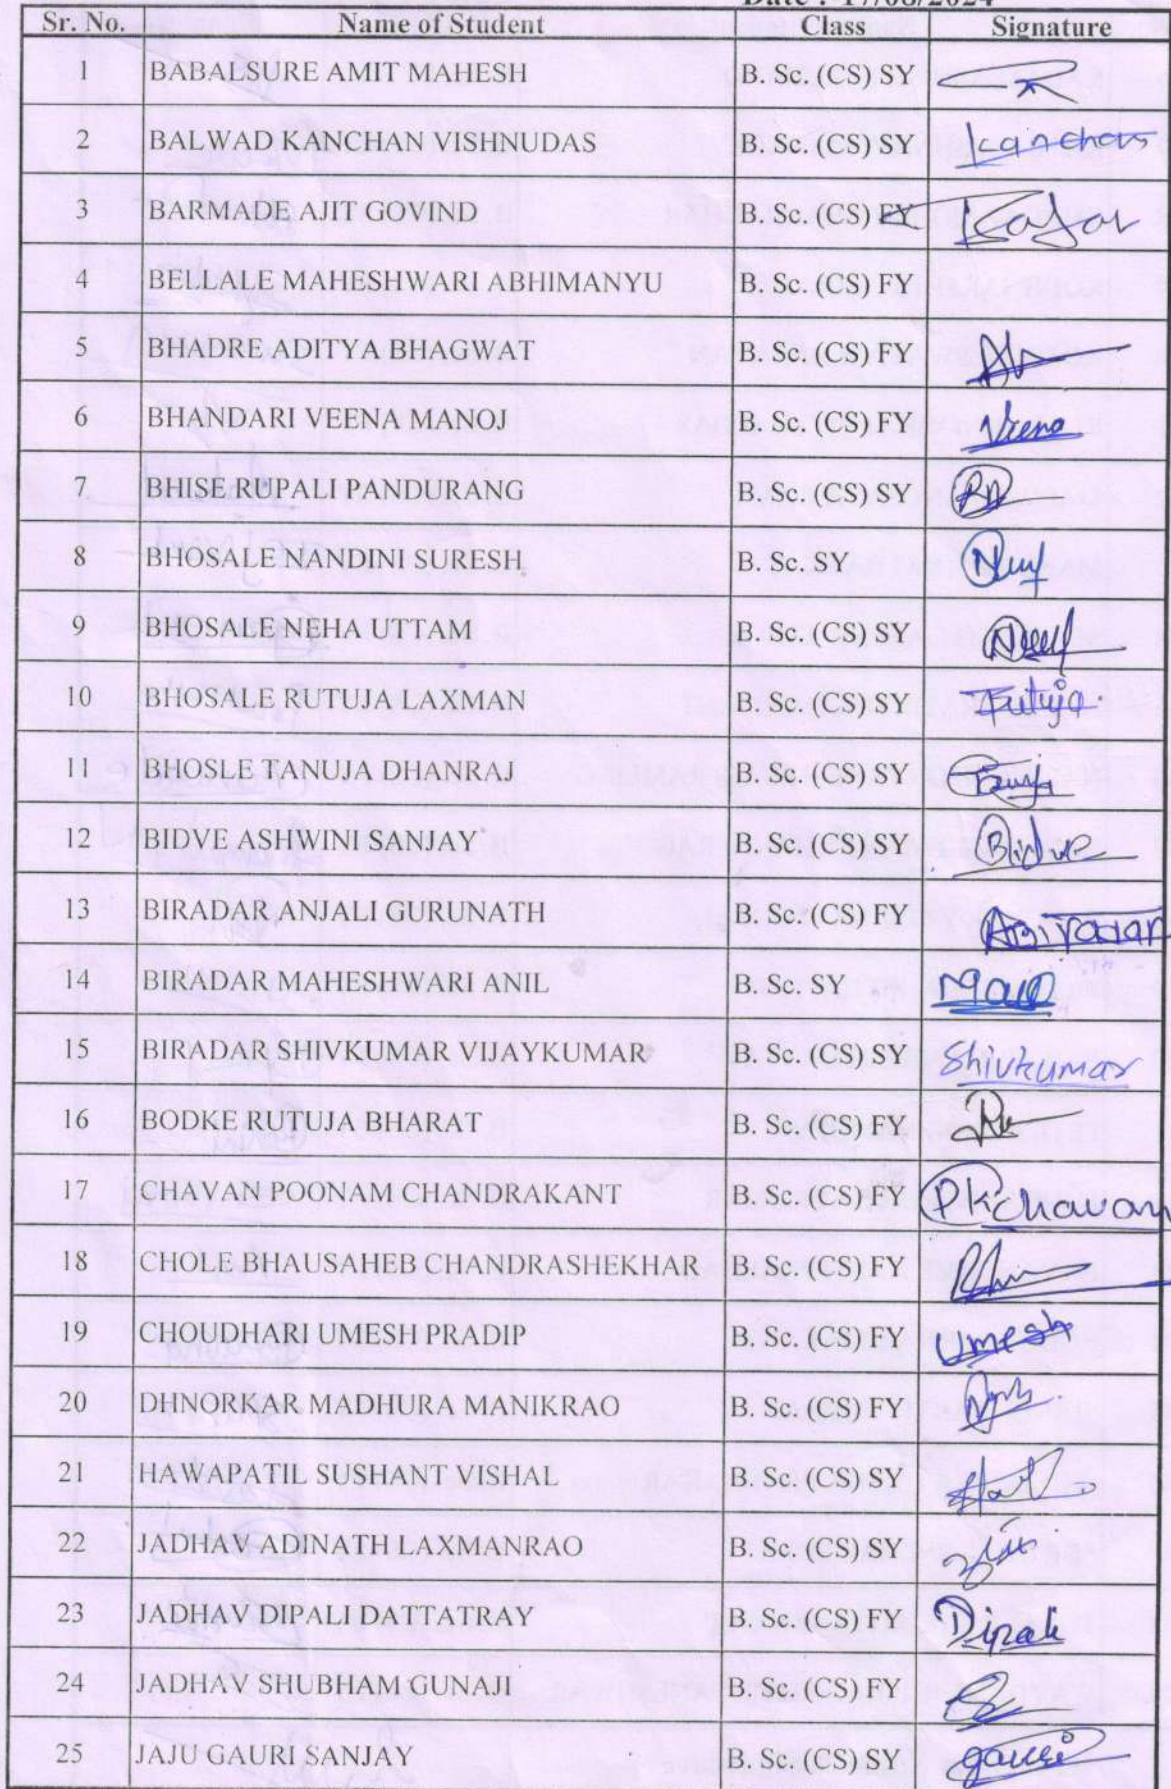 Date :- 17/08/2024
Sr. No. Name of Student Class Signature
1 BABALSURE AMIT MAHESH B. Sc. (CS) SY
2 BALWAD KANCHAN VISHNUDAS B. Sc. (CS) SY Kanchan
3 BARMADE AJIT GOVIND B. Sc. (CS) FY
4 BELLALE MAHESHWARI ABHIMANYU B. Sc. (CS) FY
5 BHADRE ADITYA BHAGWAT B. Sc. (CS) FY
6 BHANDARI VEENA MANOJ B. Sc. (CS) FY Veena
7 BHISE RUPALI PANDURANG B. Sc. (CS) SY
8 BHOSALE NANDINI SURESH B. Sc. SY
9 BHOSALE NEHA UTTAM B. Sc. (CS) SY
10 BHOSALE RUTUJA LAXMAN B. Sc. (CS) SY Rutuja
11 BHOSLE TANUJA DHANRAJ B. Sc. (CS) SY
12 BIDVE ASHWINI SANJAY B. Sc. (CS) SY Bidve
13 BIRADAR ANJALI GURUNATH B. Sc. (CS) FY ABiradar
14 BIRADAR MAHESHWARI ANIL B. Sc. SY
15 BIRADAR SHIVKUMAR VIJAYKUMAR B. Sc. (CS) SY Shivkumar
16 BODKE RUTUJA BHARAT B. Sc. (CS) FY
17 CHAVAN POONAM CHANDRAKANT B. Sc. (CS) FY PKChavan
18 CHOLE BHAUSAHEB CHANDRASHEKHAR B. Sc. (CS) FY
19 CHOUDHARI UMESH PRADIP B. Sc. (CS) FY Umesh
20 DHNORKAR MADHURA MANIKRAO B. Sc. (CS) FY
21 HAWAPATIL SUSHANT VISHAL B. Sc. (CS) SY
22 JADHAV ADINATH LAXMANRAO B. Sc. (CS) SY
23 JADHAV DIPALI DATTATRAY B. Sc. (CS) FY Dipali
24 JADHAV SHUBHAM GUNAJI B. Sc. (CS) FY
25 JAJU GAURI SANJAY B. Sc. (CS) SY gauri